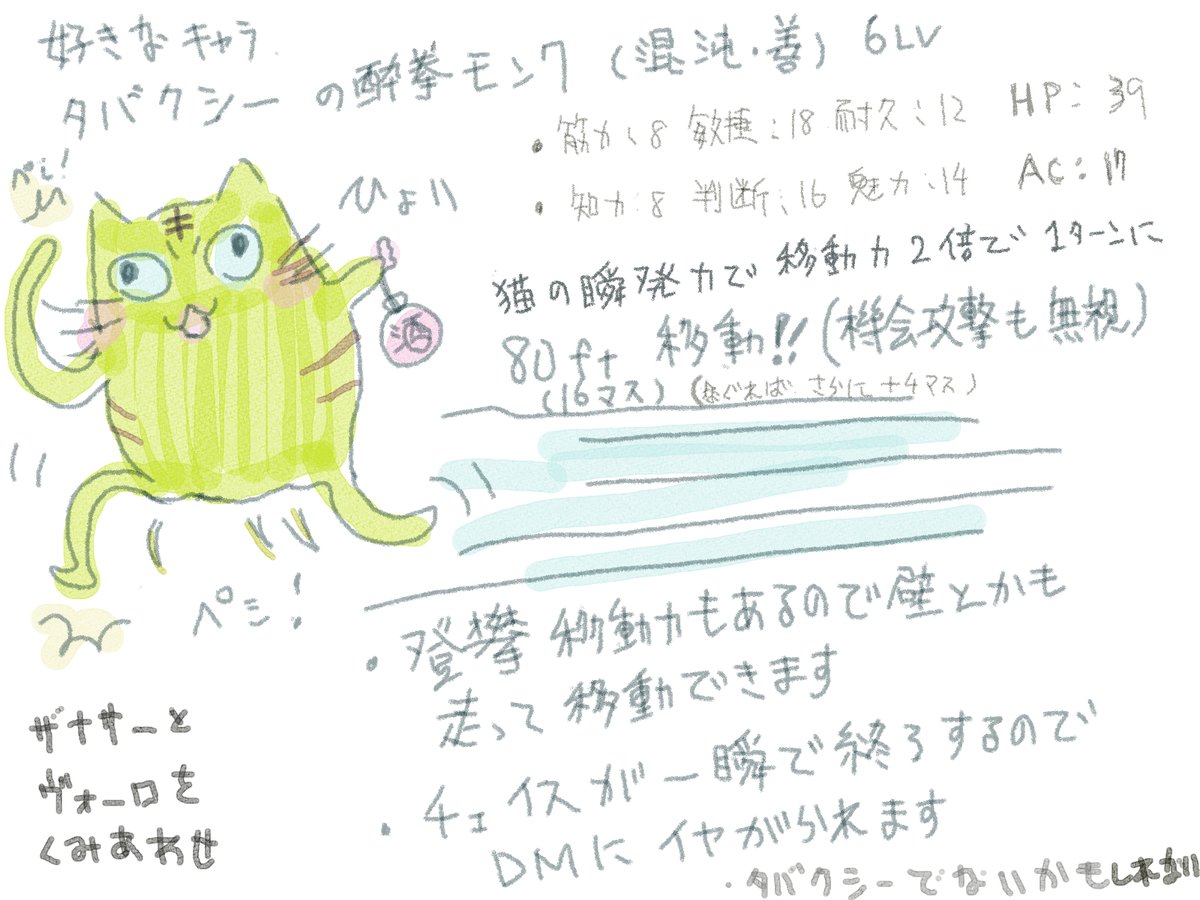 好きなキャラ
タバクシーの酔拳モンク (混沌・善) 6LV
・筋力:8 敏捷:18 耐久:12 HP:39
・知力:8 判断:16 魅力:14 AC:17
ぺし!
ひょい
酒
猫の瞬発力で移動力2倍で1ターンに
80ft 移動!!(機会攻撃も無視)
(16マス) (なぐれば さらに +4マス)
ペシ!
・登攀移動力もあるので壁とかも
走って移動できます
・チェイスが一瞬で終了するので
DMにイヤがられます
・タバクシーでないかもしれない
ザナサーと
ヴォーロを
くみあわせ